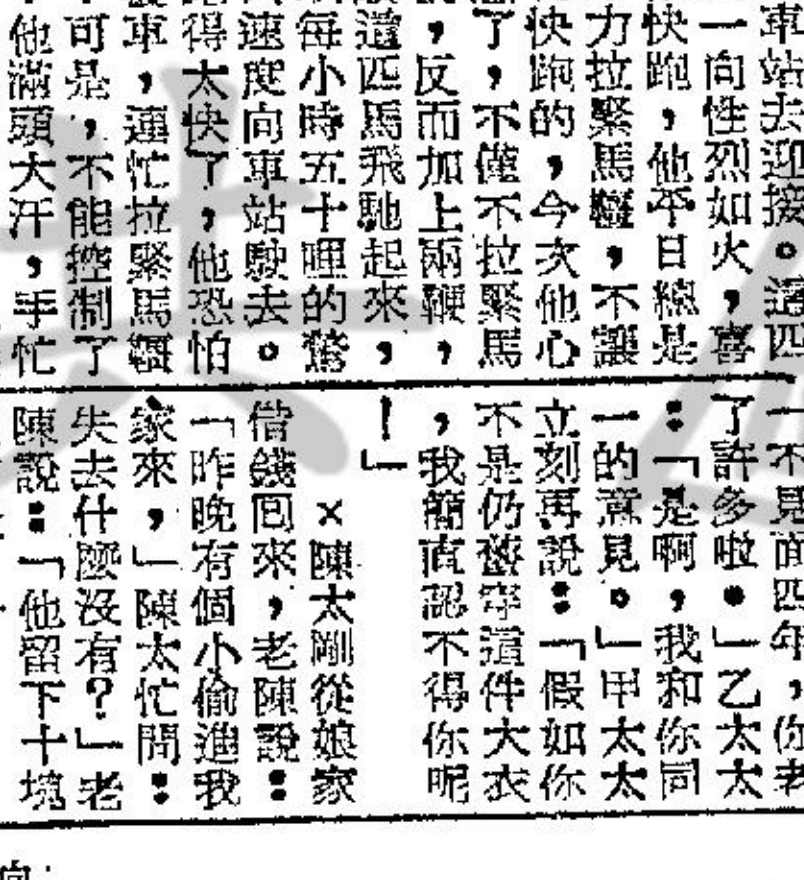 車站去迎接。這匹
一向性烈如火,喜
快跑,他平日總是
力拉緊馬韁,不讓
快跑的,今次他心
了,不僅不拉緊馬
,反而加上兩鞭,
這匹馬飛馳起來,
每小時五十哩的驚
速度向車站駛去。
得太快了,他恐怕
車,連忙拉緊馬韁
可是,不能控制了
他滿頭大汗,手忙
一不見面四年,你老
了許多啦。」乙太太
:「是啊,我和你同
一的意見。」甲太太
立刻再說:「假如你
不是仍舊穿這件大衣
,我簡直認不得你呢
!」
×陳太剛從娘家
借錢回來,老陳說:
「昨晚有個小偷進我
家來,」陳太忙問:
失去什麼沒有?」老
陳說:「他留下十塊